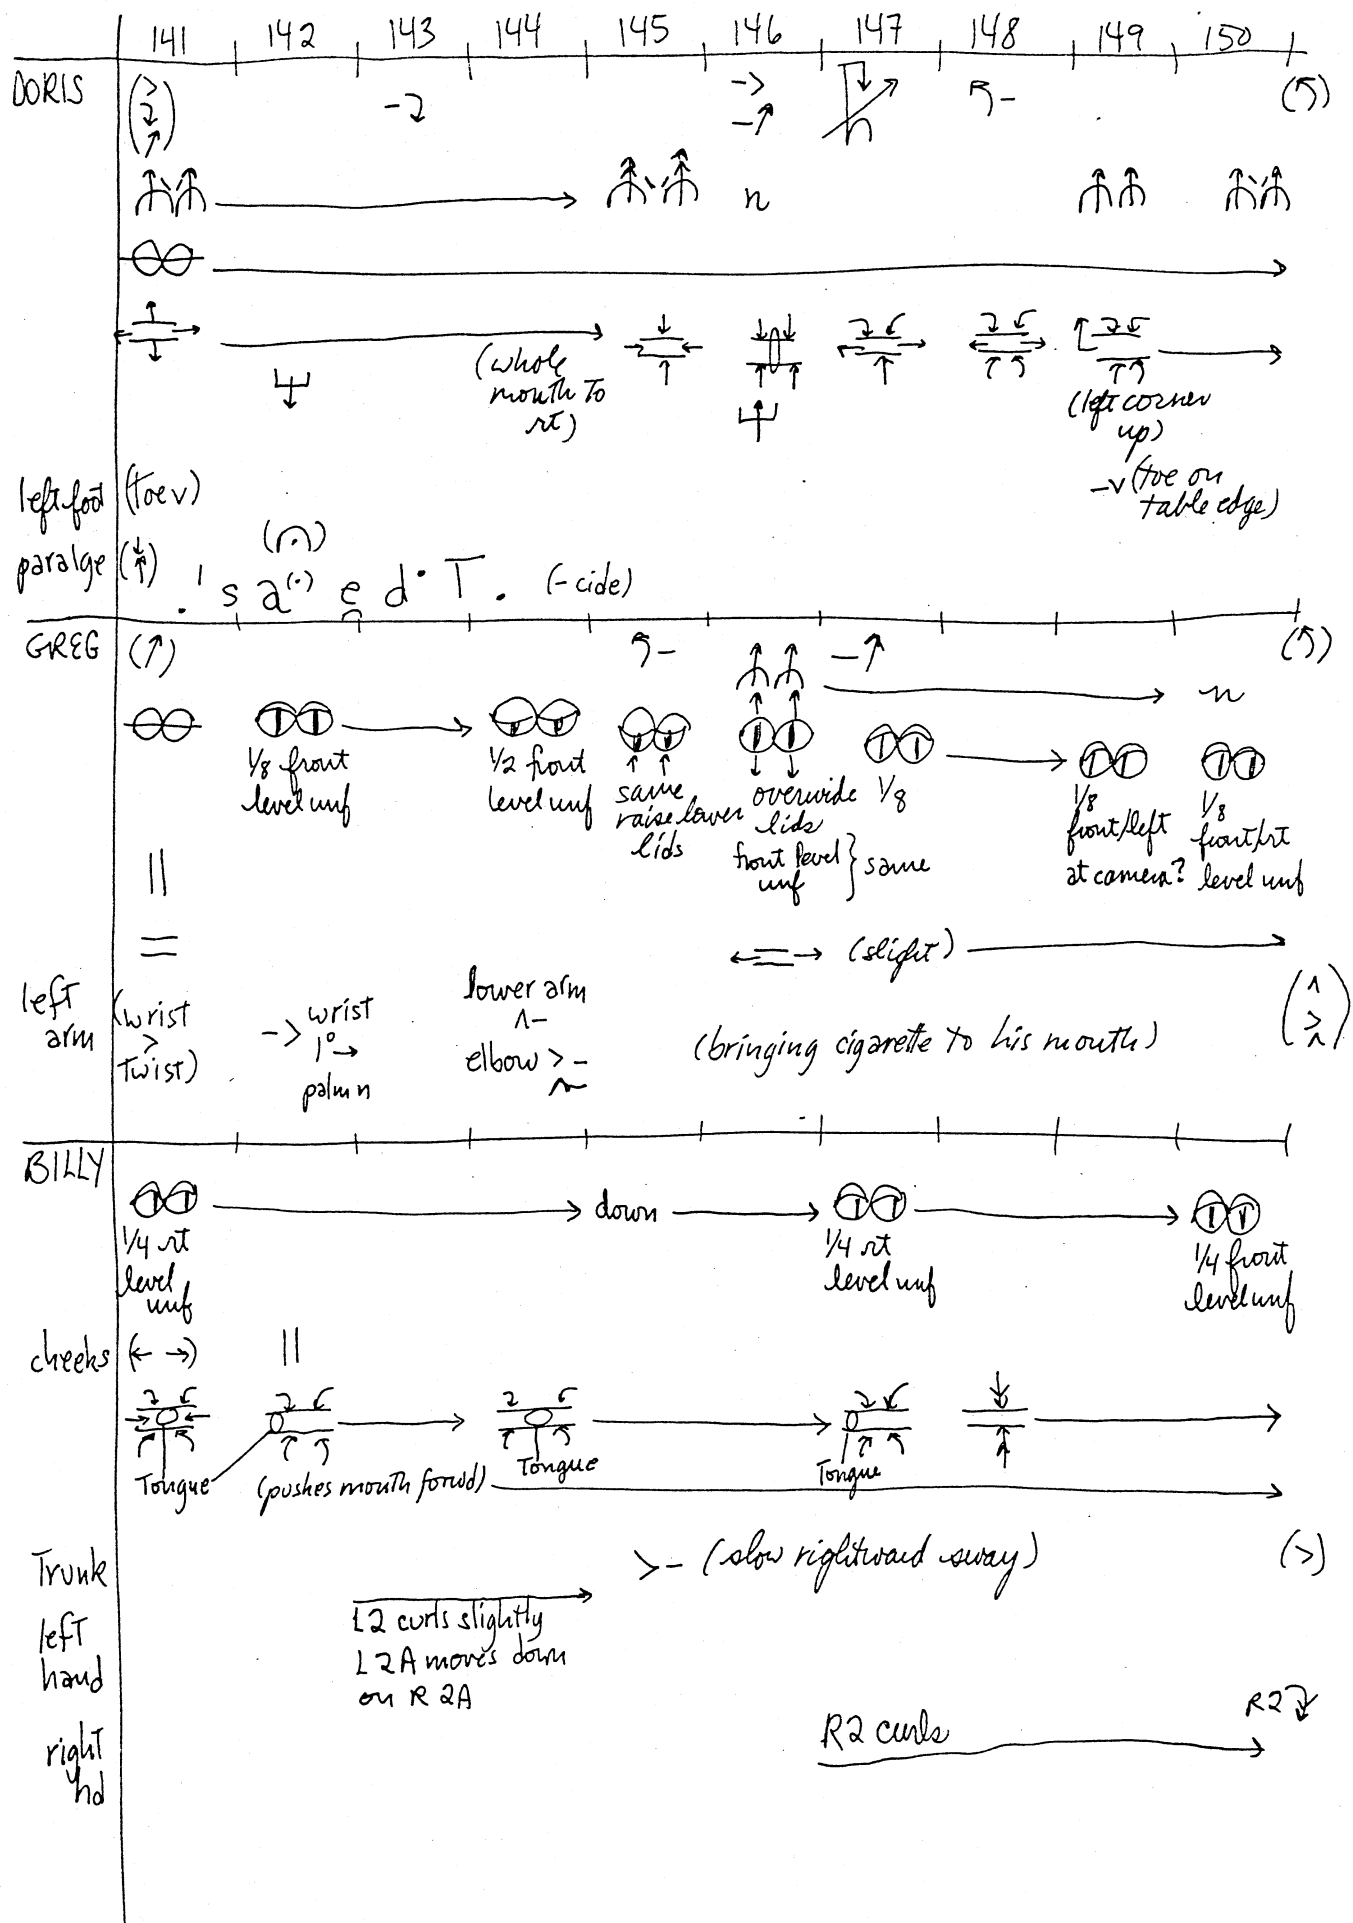 141 142 143 144 145 146 147 148 149 150
DORIS
n
(whole
mouth to
rt)
(left corner
up)
left foot (toe v)
-v (toe on
table edge)
paralge
. ' s a (·) e d · T . (-cide)
GREG
n
1/8 front
level unf
1/2 front
level unf
same
raise lower
lids
overwide
lids
front level
unf } same
1/8
1/8
front/left
at camera?
1/8
front/rt
level unf
(slight)
left
arm
(wrist
>
twist)
-> wrist
1° →
palm n
lower arm
^-
elbow > -
(bringing cigarette to his mouth)
BILLY
down
1/4 rt
level
unf
1/4 rt
level unf
1/4 front
level unf
cheeks (← →)
Tongue
(pushes mouth forwd)
Tongue
Tongue
Trunk
>- (slow rightward sway) (>)
left
hand
L2 curls slightly
L2A moves down
on R 2A
right
hd
R2 curls
R2